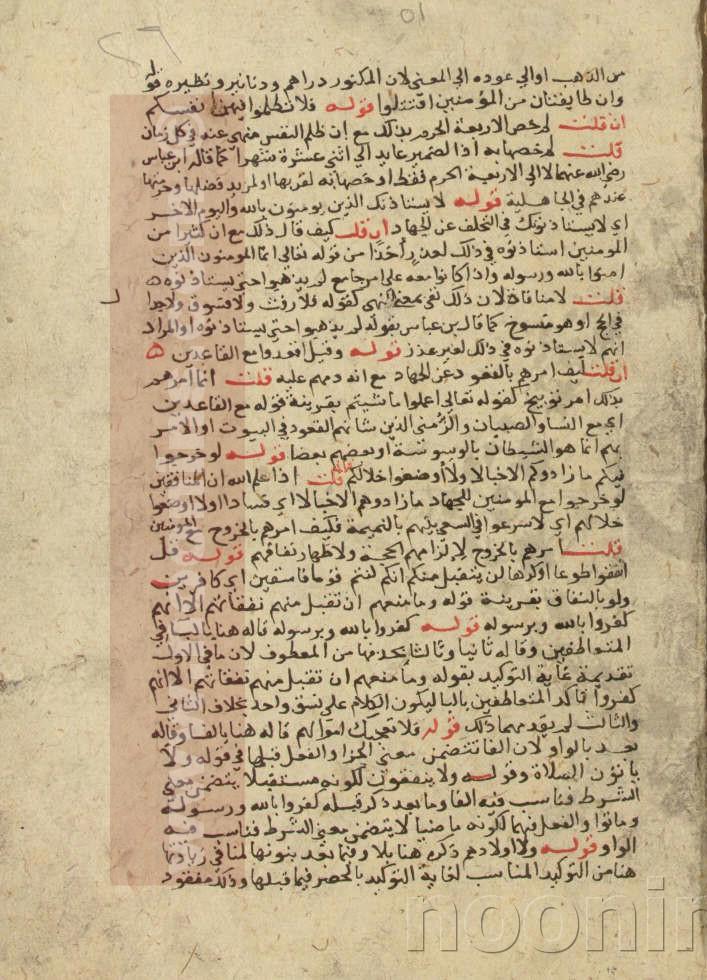 من الذهب او الي عوده الي المعني لان المكنوز دراهم ودنانير ونظيره قوله
وان طايفتان من المؤمنين اقتتلوا قوله فلا تظلموا فيهن انفسكم
ان قلت لم خص الاربعة الحرم بذلك مع ان ظلم النفس منهي عنه في كل زمان
قلت لم خصها به اذ الضمير عايد الي اثني عشر شهرا كما قاله ابن عباس
رضي الله عنهما لا الي الاربعة الحرم فقط او خصها به لقربها او لمزيد فضلها وحرمتها
عندهم في الجاهلية قوله لا يستاذنك الذين يومنون بالله واليوم الاخر
اي لا يستاذنونك في التخلف عن الجهاد ان قلت كيف قال ذلك مع ان كثيرا من
المومنين استاذنوه في ذلك لعذر اخذا من قوله تعالي انما المومنون الذين
امنوا بالله ورسوله واذا كانوا معه علي امر جامع لم يذهبوا حتي يستاذنوه
قلت لا منافاة لان ذلك نفي بمعني النهي كقوله فلا رفث ولا فسوق ولا جدال
في الحج او هو منسوخ كما قال ابن عباس بقوله لم يذهبوا حتي يستاذنوه او المراد
انهم لا يستاذنوه في ذلك لغير عذر قوله وقيل اقعدوا مع القاعدين
ان قلت كيف امرهم بالقعود عن الجهاد مع انه ذمهم عليه قلت انما امرهم
بذلك امر توبيخ كقوله تعالي اعملوا ما شيتم بقرينة قوله مع القاعدين
اي مع النسا والصبيان والزمني الذين شانهم القعود في البيوت او الامر
بهم انما هو الشيطان بالوسوسة او بعضهم بعضا قوله لو خرجوا
فيكم ما زادوكم الا خبالا ولا اوضعوا خلالكم ان قلت اذا علم الله ان المنافقين
لو خرجوا مع المومنين للجهاد ما زادوهم الا خبالا اي فسادا ولا اوضعوا
خلالهم اي لاسرعوا في السعي بينهم بالنميمة فكيف امرهم بالخروج مع المومنين
قلت امرهم بالخروج لالزامهم الحجة ولاظهار نفاقهم قوله قل
انفقوا طوعا او كرها لن يتقبل منكم انكم كنتم قوما فاسقين اي كافرين
ولو بالنفاق بقرينة قوله وما منعهم ان تقبل منهم نفقاتهم الا انهم
كفروا بالله وبرسوله قوله كفروا بالله وبرسوله قاله هنا بالبا في
المتعاطفين وقاله ثانيا وثالثا بحذفها من المعطوف لان ما في الاول
تقدمه غاية التوكيد بقوله وما منعهم ان تقبل منهم نفقاتهم الا انهم
كفروا فاكد المتعاطفين بالبا ليكون الكلام علي نسق واحد بخلاف الثاني
والثالث لم يتقدمهما ذلك قوله فلا تعجبك اموالهم قاله هنا بالفا وقاله
بعد بالواو لان الفا تتضمن معني الجزا والفعل قبلها في قوله ولا
ياتون الصلاة وقوله ولا ينفقون لكونه مستقبلا يتضمن معني
الشرط فناسب فيه الفا وما بعد ذكر قبله كفروا بالله ورسوله
وماتوا والفعل فيهما لكونه ماضيا لا يتضمن معني الشرط فناسب فيه
الواو قوله ولا اولادهم ذكره هنا بلا وفيما بعد بدونها لما في زيادتها
هنا من التوكيد المناسب لغاية التوكيد بالحصر فيما قبلها وذلك مفقود